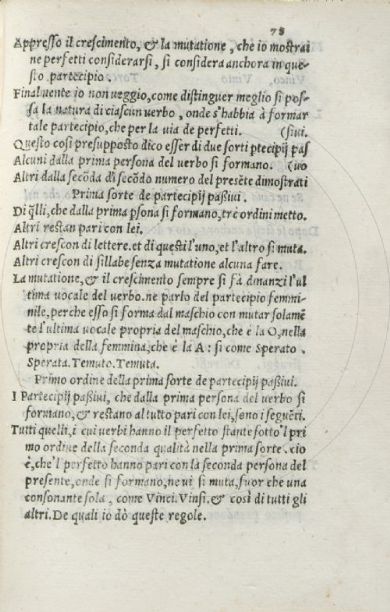 78
Appreſſo il creſcimento, & la mutatione, che io moſtrai
ne perfetti conſiderarſi, ſi conſidera anchora in que-
ſto partecipio.
Finalmente io non ueggio, come diſtinguer meglio ſi poſ-
ſa la natura di ciaſcun uerbo, onde s'habbia à formar
tale partecipio, che per la uia de perfetti. (ſiui.
Queſto coſi preſuppoſto dico eſſer di due ſorti ptecipij paſ
Alcuni dalla prima perſona del uerbo ſi formano. (uo
Altri dalla secōda di ſecōdo numero del preſēte dimoſtrati
Prima ſorte de partecipij paßiui.
Di q̃lli, che dalla prima pſona ſi formano, tre ordini metto.
Altri reſtan pari con lei.
Altri creſcon di lettere. et di queſti l'uno, et l'altro ſi muta.
Altri creſcon di ſillabe ſenza mutatione alcuna fare.
La mutatione, & il creſcimento ſempre ſi fà dinanzi l'ul
tima uocale del uerbo. ne parlo del partecipio femmi-
nile, perche eſſo ſi forma dal maſchio con mutar ſolamē
te l'ultima uocale propria del maſchio, che è la O, nella
propria della femmina, che è la A: ſi come Sperato.
Sperata. Temuto. Temuta.
Primo ordine della prima ſorte de partecipij paßiui.
I Partecipij paßiui, che dalla prima perſona del uerbo ſi
formano, & reſtano al tutto pari con lei, ſono i ſeguēti.
Tutti quelli, i cui uerbi hanno il perfetto ſtante ſotto'l pri
mo ordine della ſeconda qualità nella prima ſorte. cio
è, che'l perfetto hanno pari con la ſeconda perſona del
preſente, onde ſi formano, ne ui ſi muta, fuor che una
conſonante ſola, come Vinci. Vinſi. & coſì di tutti gli
altri. De quali io dò queſte regole.